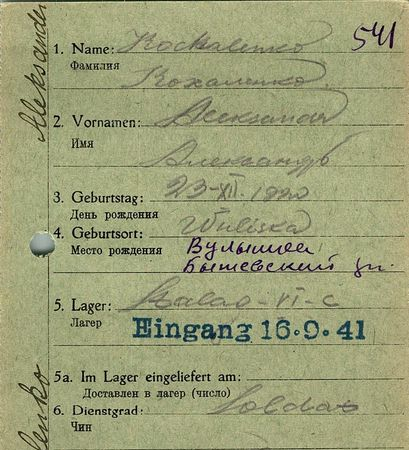 541
Aleksander
1. Name: Kochalenko
Фамилия Кохаленко
2. Vornamen: Aleksandr
Имя Александръ
3. Geburtstag: 23-XII. 1920
День рождения
4. Geburtsort:
Место рождения
5. Lager: Stalag-VI-C
Лагер
Eingang 16.9.41
5a. Im Lager eingeliefert am:
Доставлен в лагер (число)
6. Dienstgrad: Soldat
Чин
lenko